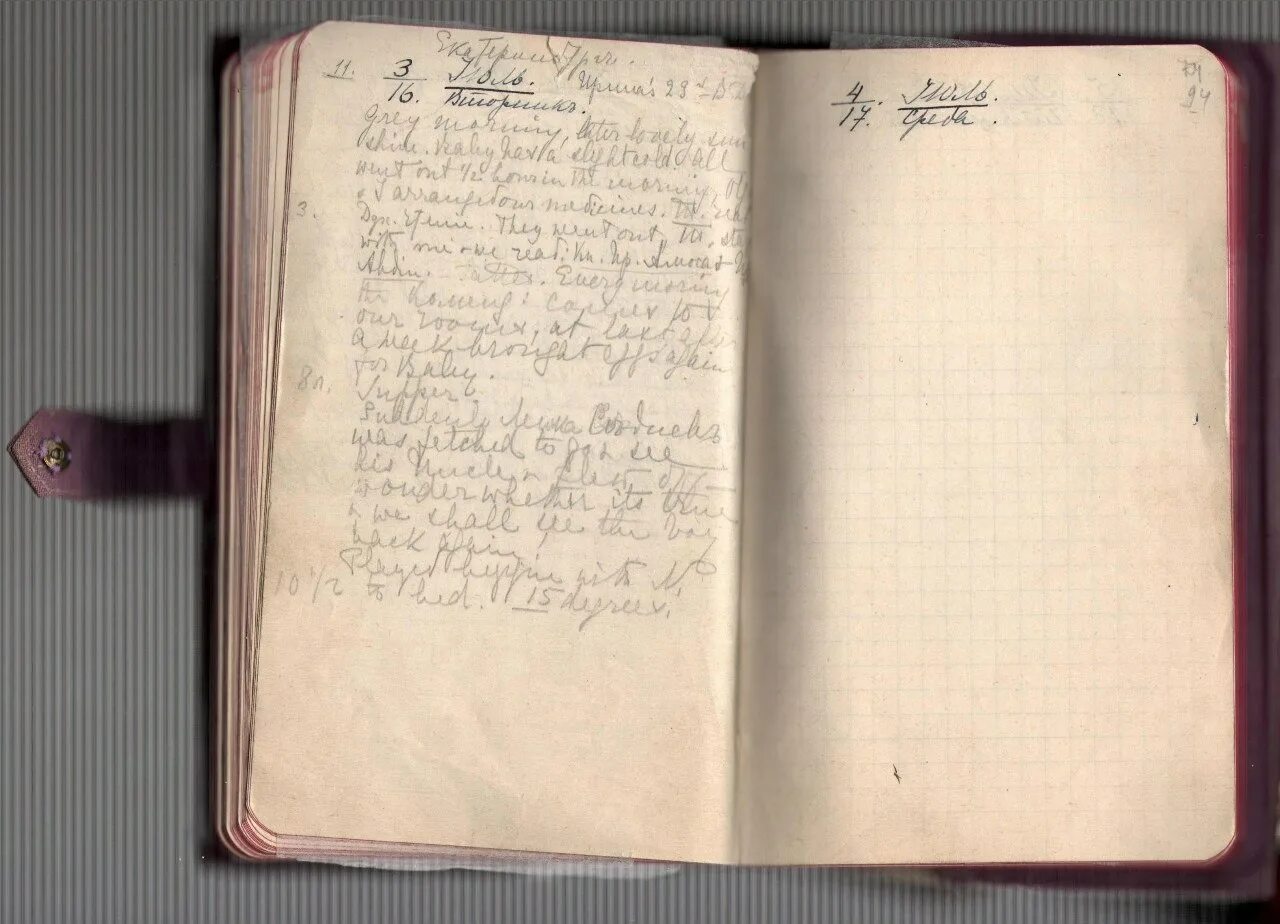 Екатеринбург.
11. 3/16. Июль. Ирина's 23d BD
Вторникъ.
Grey morning, later lovely sun
shine. Baby has a slight cold. All
went out 1/2 hour in the morning, Ol
& I arranged our medicines. T. rea
3. Дух. Чтение. They went out, T. sta
with me & we read: Кн. Пр. Амоса &
Авдія. Tatted. Every morning
the Komend: comes to
our rooms, at last after
a week brought eggs again
for Baby.
8 Supper
Suddenly Лёнька Седневъ
was fetched to go & see
his Uncle & flew off –
wonder whether its true
& we shall see the boy
back again!
Played bezique with N.
10 1/2 to bed. 15 degrees.
4/17. Июль.
Среда.
94